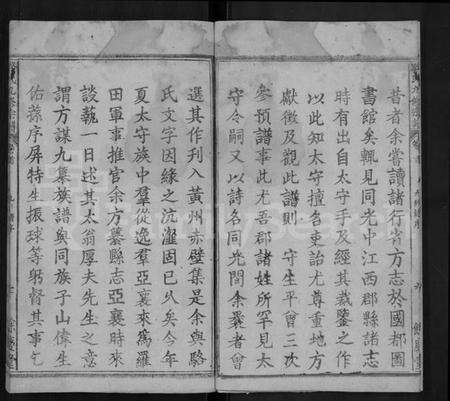 昔者余嘗讀諸行省方志於國都圖
書館矣輒見同光中江西郡縣諸志
時有出自太守手及經其裁鑒之作
以此知太守擅名吏治尤尊重地方
獻徵及觀此譜則 守生平曾三次
參預譜事此尤吾郡諸姓所罕見太
守令嗣又以詩名同光間余曩者曾
選其作刋入黃州赤壁集是余與駱
氏文字因緣之沆瀣固已久矣今年
夏太守族中羣從逸羣亞襄來萬羅
田軍事推官余方纂縣志亞襄時來
談藝一日述其太翁厚夫先生之意
謂方謀九纂族譜與同族子山偉生
佑蓀序屏特生振球等躬督其事乞